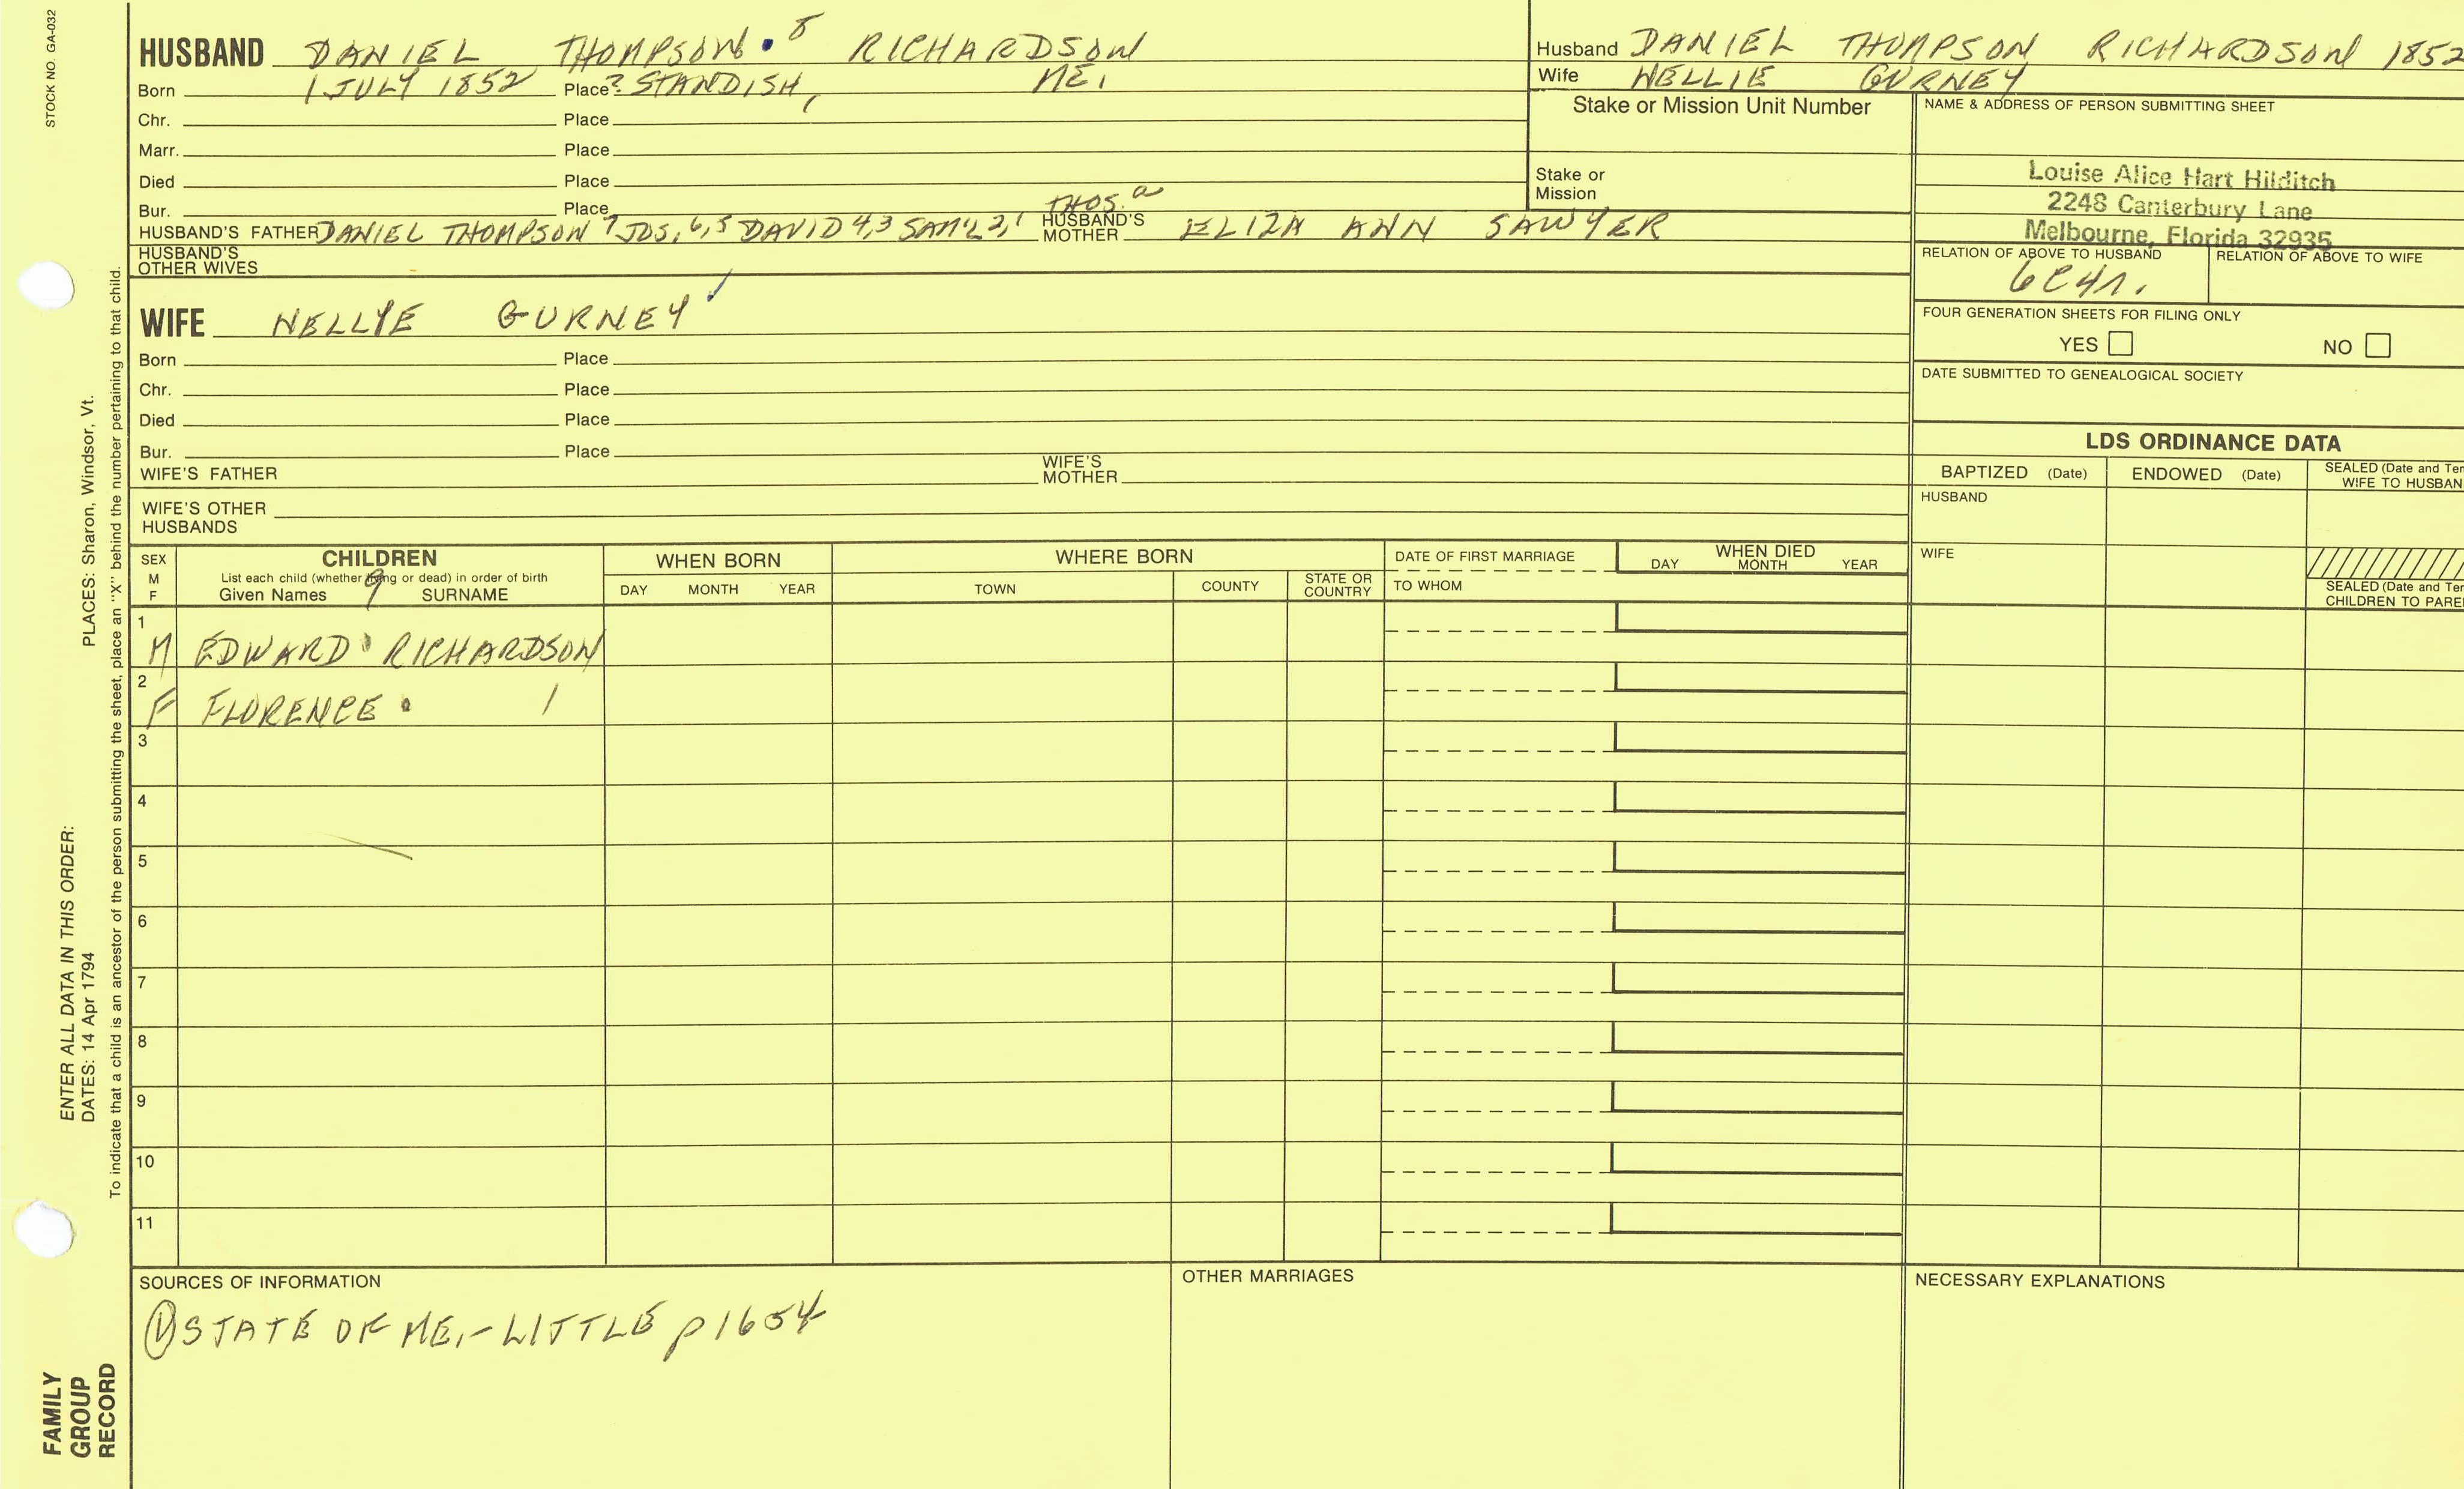 STOCK NO. GA-032
HUSBAND DANIEL THOMPSON 8 RICHARDSON
Born 1 JULY 1852 Place ? STANDISH, ME.
Chr. Place
Marr. Place
Died Place
Bur. Place
HUSBAND'S FATHER DANIEL THOMPSON 7 JOS. 6,5 DAVID 4,3 SAM'L 2,1 THOS. a HUSBAND'S MOTHER ELIZA ANN SAWYER
HUSBAND'S OTHER WIVES
WIFE NELLIE GURNEY
Born Place
Chr. Place
Died Place
Bur. Place
WIFE'S FATHER WIFE'S MOTHER
WIFE'S OTHER HUSBANDS
Husband DANIEL THOMPSON RICHARDSON 1852
Wife NELLIE GURNEY
Stake or Mission Unit Number
Stake or Mission
NAME & ADDRESS OF PERSON SUBMITTING SHEET
Louise Alice Hart Hilditch
2248 Canterbury Lane
Melbourne, Florida 32935
RELATION OF ABOVE TO HUSBAND RELATION OF ABOVE TO WIFE
6C4r.
FOUR GENERATION SHEETS FOR FILING ONLY
YES NO
DATE SUBMITTED TO GENEALOGICAL SOCIETY
LDS ORDINANCE DATA
BAPTIZED (Date) ENDOWED (Date) SEALED (Date and Tem
WIFE TO HUSBAN
HUSBAND
WIFE
SEALED (Date and Tem
CHILDREN TO PARE
SEX
M
F
CHILDREN
List each child (whether living or dead) in order of birth
Given Names 9 SURNAME
WHEN BORN
DAY MONTH YEAR
WHERE BORN
TOWN COUNTY STATE OR COUNTRY
DATE OF FIRST MARRIAGE
TO WHOM
WHEN DIED
DAY MONTH YEAR
1
M EDWARD RICHARDSON
2
F FLORENCE /
3
4
5
6
7
8
9
10
11
SOURCES OF INFORMATION
① STATE OF ME. - LITTLE p 1654
OTHER MARRIAGES
NECESSARY EXPLANATIONS
PLACES: Sharon, Windsor, Vt.
ENTER ALL DATA IN THIS ORDER:
DATES: 14 Apr 1794
To indicate that a child is an ancestor of the person submitting the sheet, place an "X" behind the number pertaining to that child.
FAMILY
GROUP
RECORD